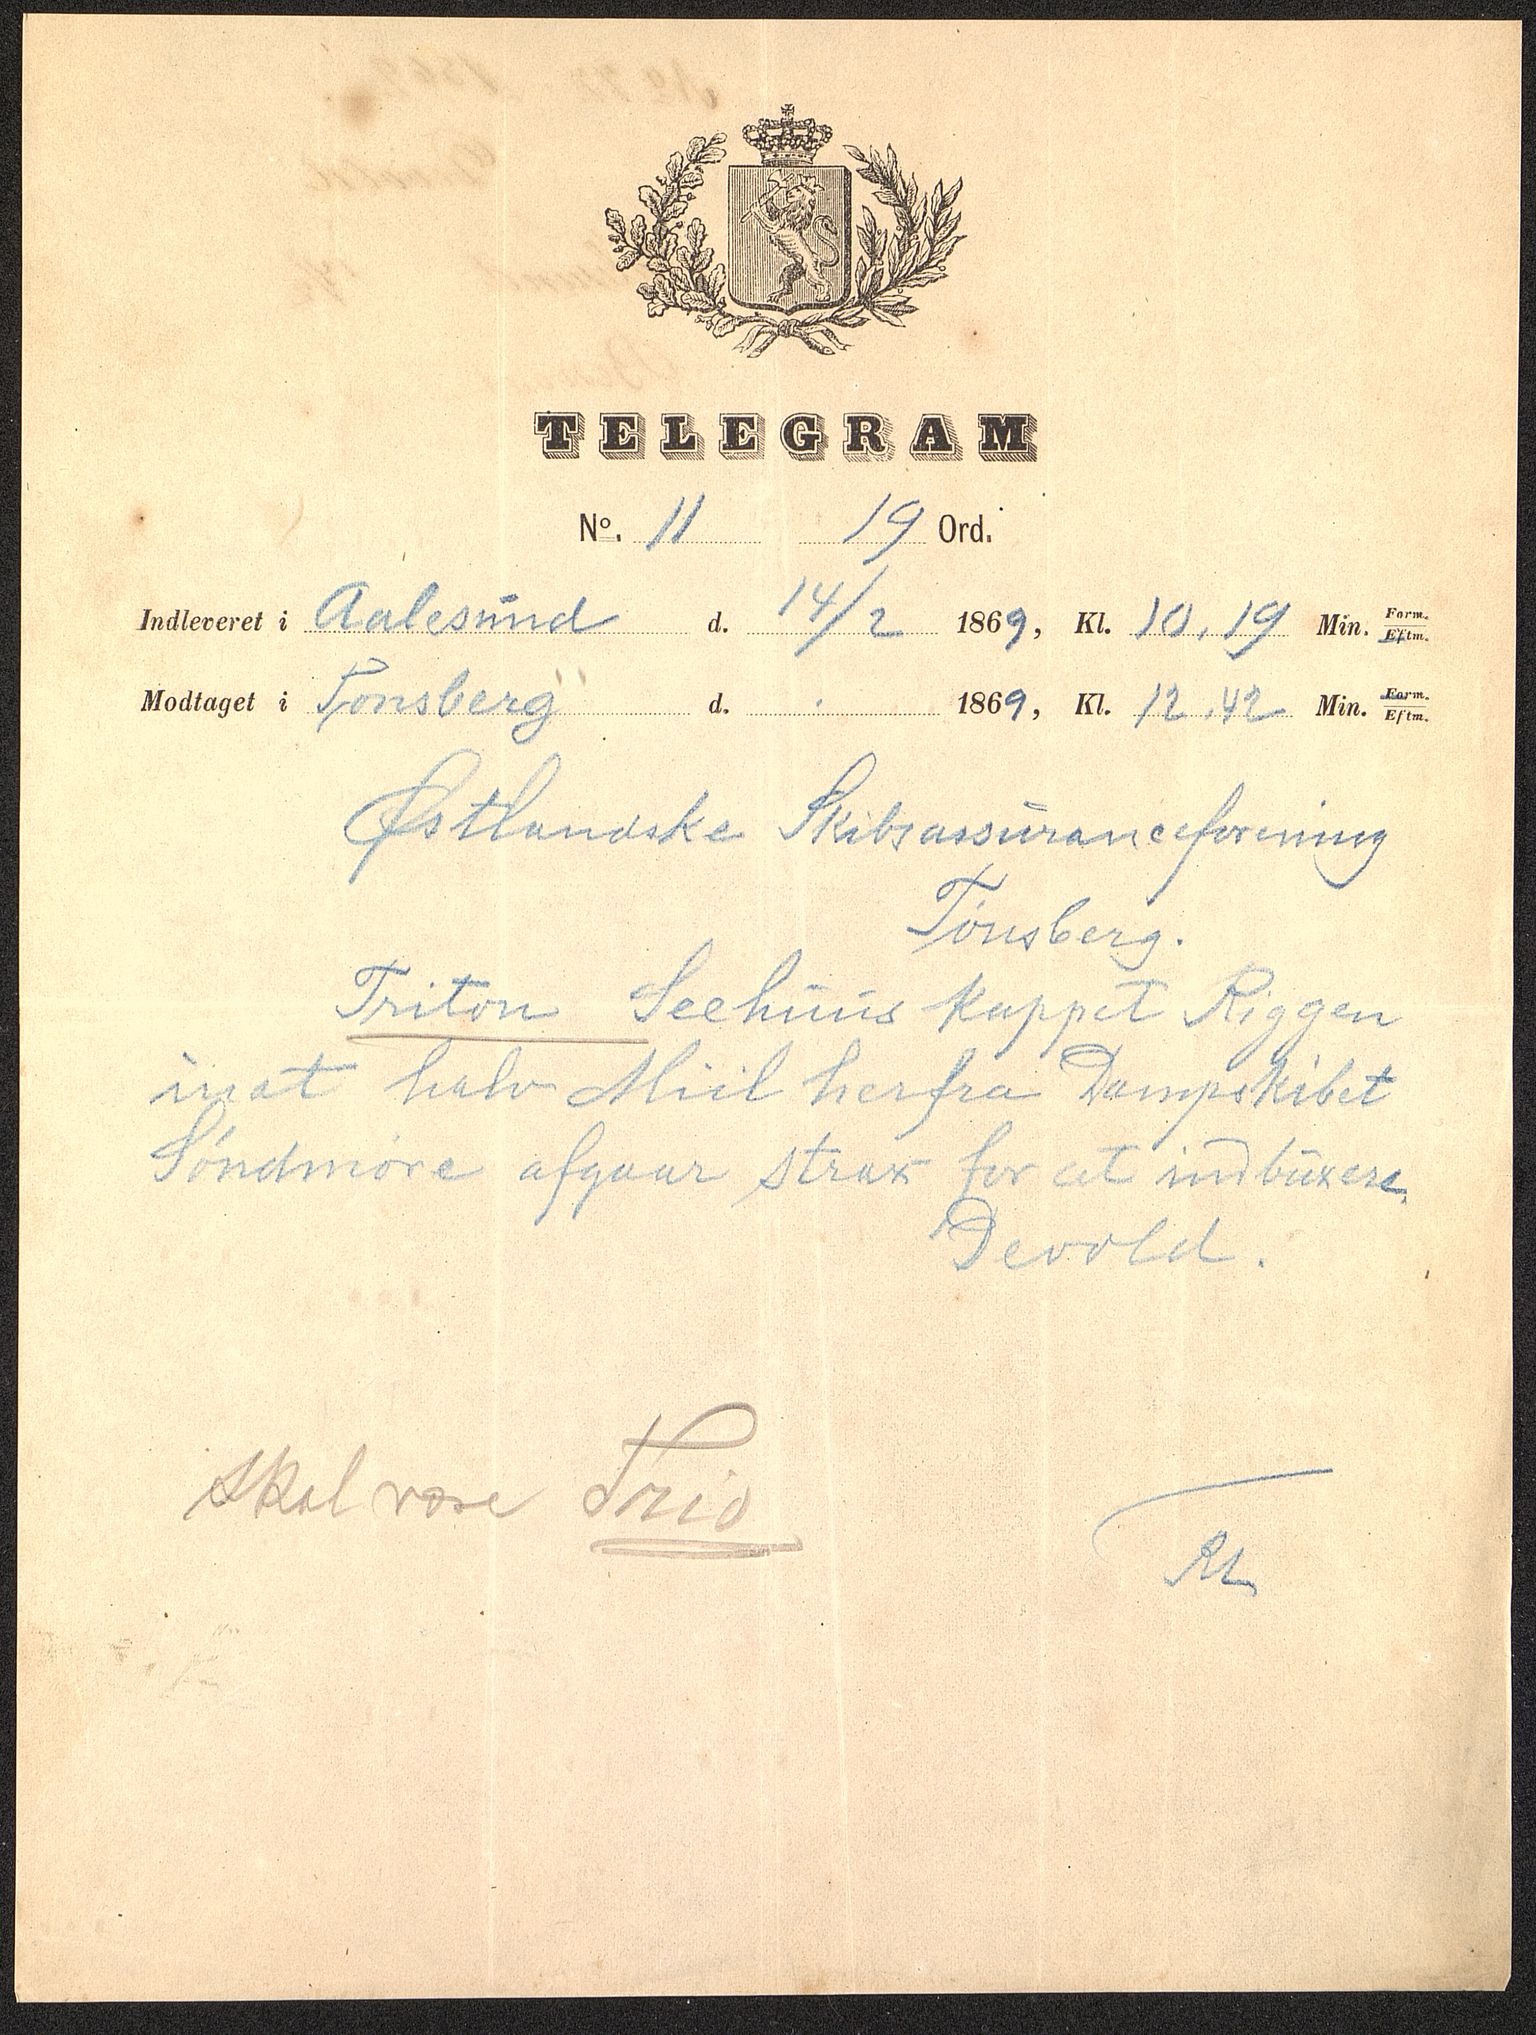 TELEGRAM
No. 11 19 Ord.
Indleveret i Aalesund d. 14/2 1869, Kl. 10.19 Min. Form. Eftm.
Modtaget i Tønsberg d. 1869, Kl. 12.42 Min. Form. Eftm.
Østlandske Skibsassuranceforening
Tønsberg.
Triton Seehuus kappet Riggen
inat halv Miil herfra Dampskibet
Søndmøre afgaar strax for at indbuxere.
Devold.
Skal være Trio